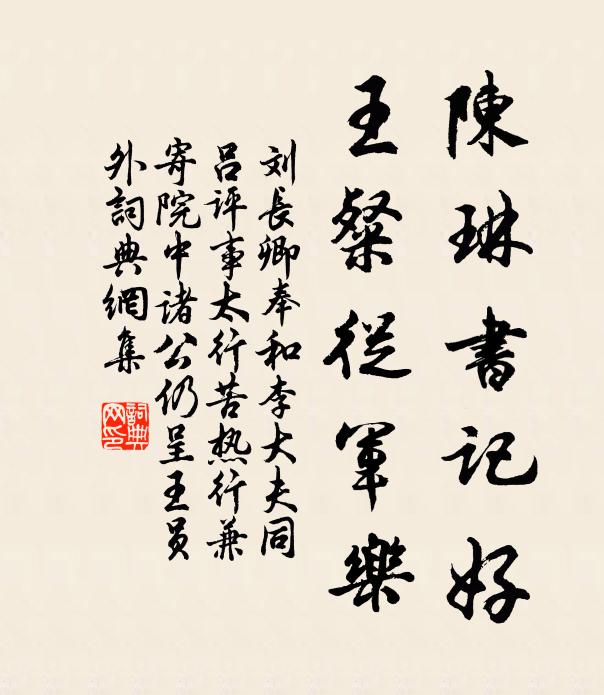 陳琳書記好
王粲從軍樂
刘長卿奉和李大夫同
吕評事太行苦热行兼
寄院中诸公仍呈王員
外詞典網集
詞典网印